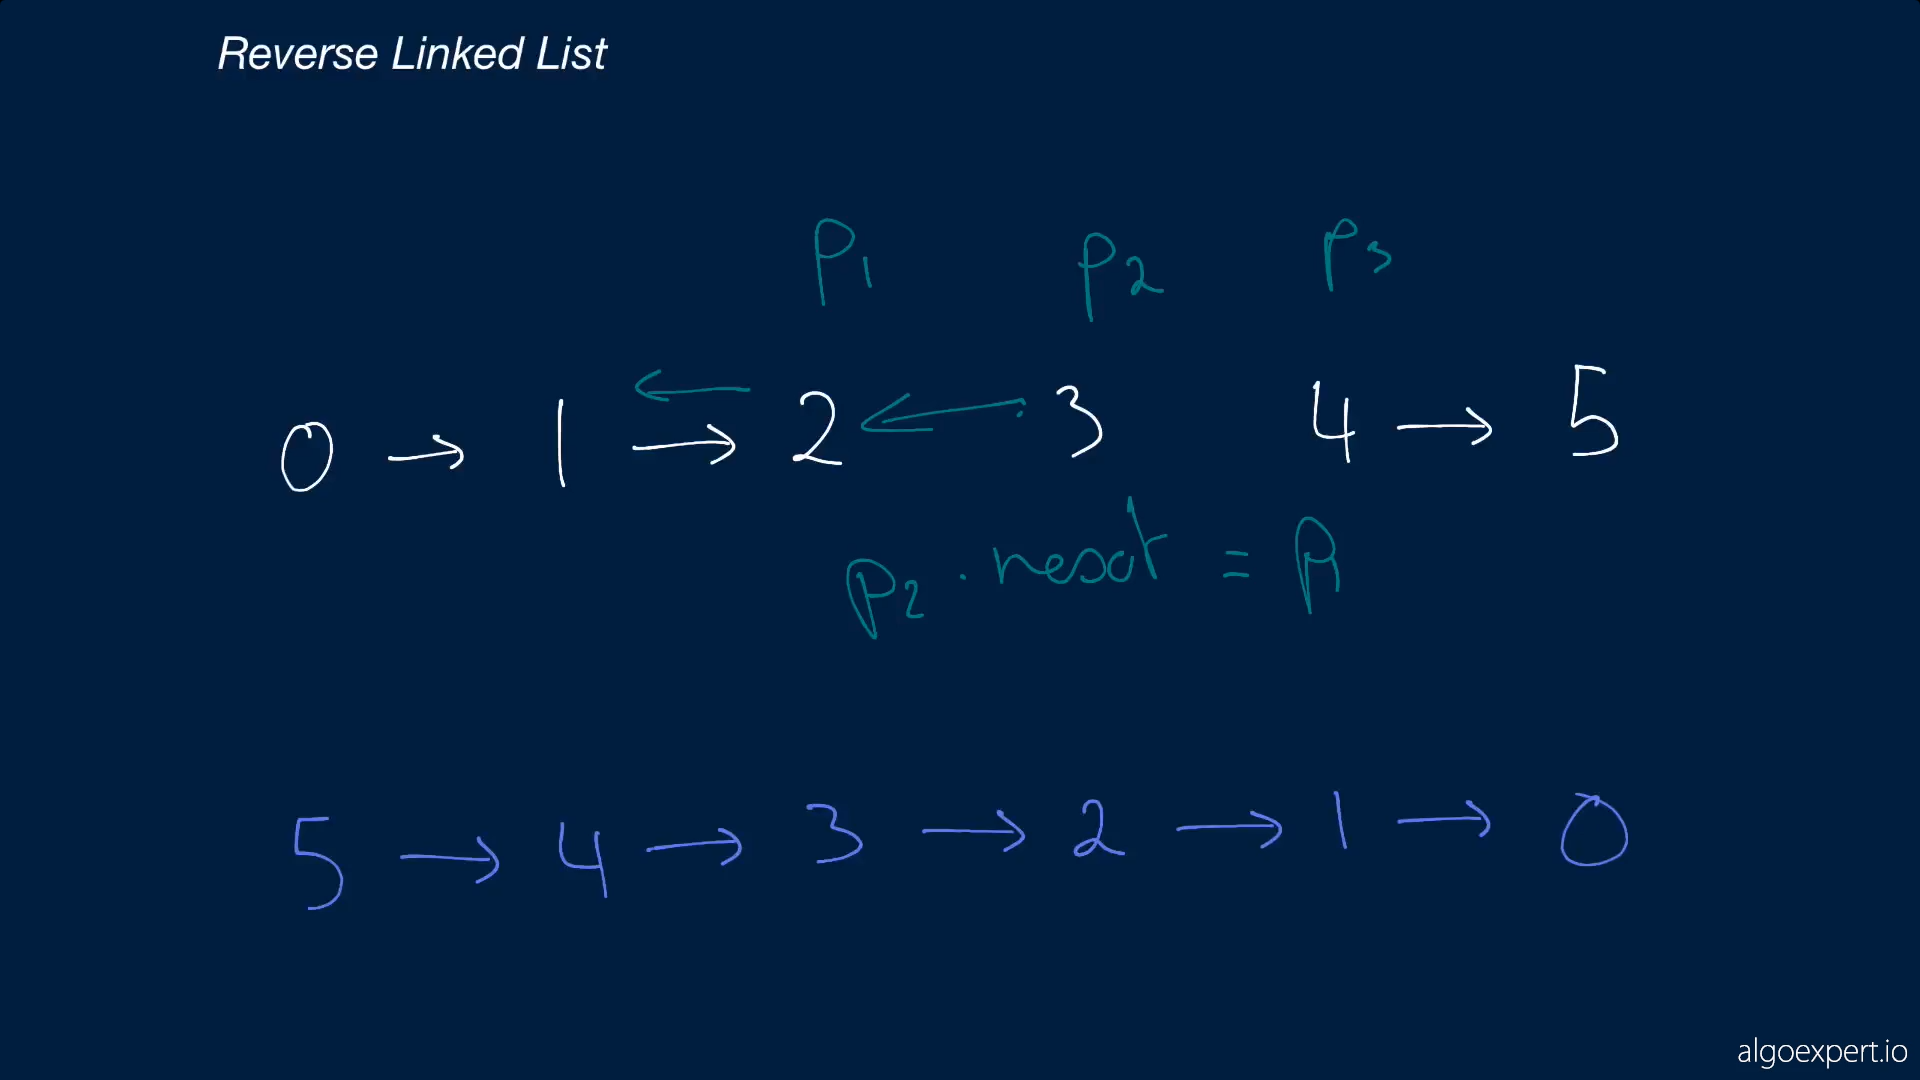 Reverse Linked List
P1 P2 P3
0 → 1 → 2 ← 3 4 → 5
←
P2 . next = P1
5 → 4 → 3 → 2 → 1 → 0
algoexpert.io